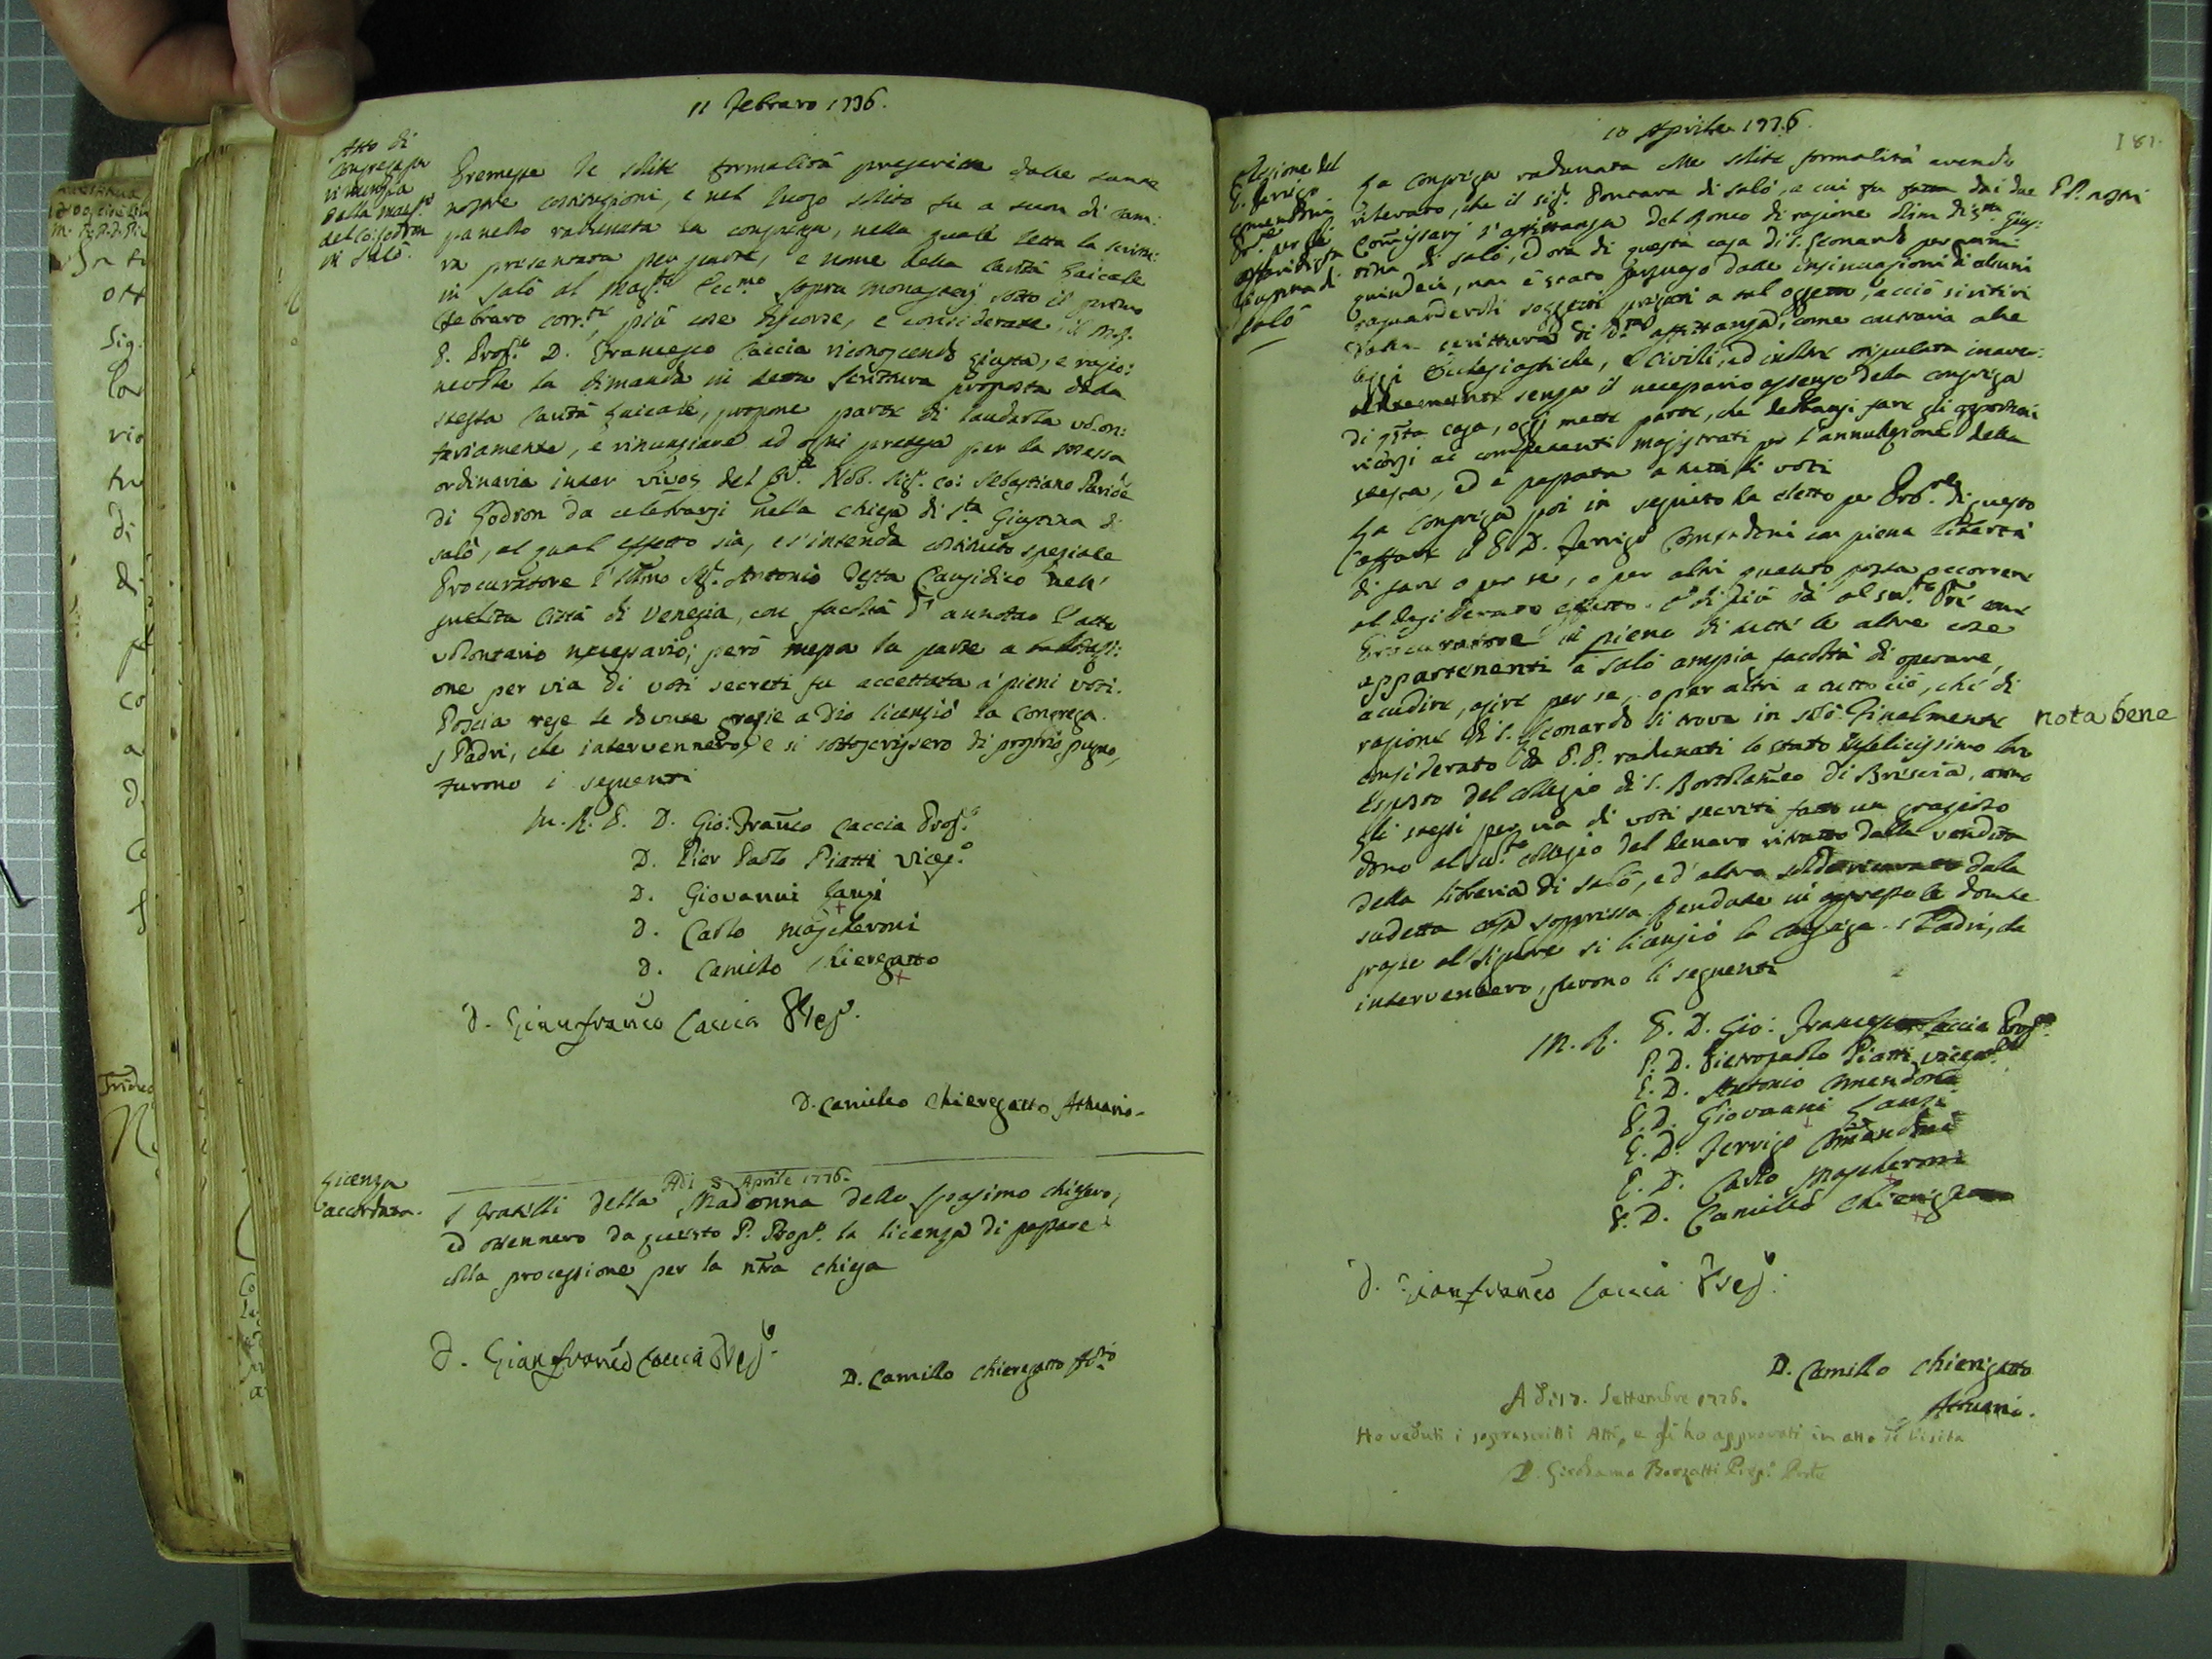 11 Febraro 1776.
Atto di
congrega per
rinunzia
dalla mess.ª
del Co: Lodron
in Salò.
Premesse le solite formalità prescritte dalle sante
nostre costituzioni, e nel luogo solito fu a suon di cam:
panello radunata la congrega, nella quale letta la scrittu:
ra presentata per parte, e nome della Carità Laicale
in Salò al Mag.to Ecc.mo sopra Monasterj sotto il primo
Febraro corr.te, più cose discorse, e considerate il M.R.
P. Prep.to D. Francesco Caccia riconoscendo giusta, e ragio:
nevole la dimanda in detta Scrittura proposta dalla
stessa Carità Laicale, propone parte di laudarla volon:
tariamente, e rinunziare ad ogni pretesa per la messa
ordinaria inter vivos del Nob. Sig.r Co: Sebastiano Paride
di Lodron da celebrarsi nella chiesa di S.ta Giustina di
Salò, al qual effetto sia, e s'intenda costituito speziale
Procuratore l'Ill.mo Sig.r Antonio Testa Causidico nell'
inclita Città di Venezia, con facoltà d'annottar l'atto
volontario necessario; però messa la parte a ballottazi:
one per via di voti secreti fu accettata a' pieni voti.
Poscia rese le dovute grazie a Dio licenziò la Congrega.
I Padri, che intervennero, e si sottoscrissero di proprio pugno,
furono i seguenti
M. R. P. D. Gio: Fran.co Caccia Prep.o
D. Pier Paolo Piatti Vicep.o
D. Giovanni Lanzi
D. Carlo Mascheroni
D. Camillo Chieregatto
D. Gianfran.co Caccia Prep.o
D. Camillo Chieregatto Attuario.
Licenza
accordata.
Adì 8 Aprile 1776.
I Fratelli della Madonna dello Spasimo chiesero,
ed ottennero da questo P. Prop.o la licenza di passare
colla processione per la nra chiesa
D. Gianfran.co Caccia Prep.o
D. Camillo Chieregatto Att.rio
10 Aprile 1776.
181.
Elezione del
P. Ferrigo
Comendoni
Pr.re per li
affari di S.ta
Giustina di
Salò
La congrega radunata colle solite formalità avendo
rilevato, che il sig.r Bontara di Salò, a cui fu fatta dai due PP. nostri
Comissarj l'affittanza del Bonco di ragione olim di S.ta Gius:
tina di Salò, ed ora di questa casa di S. Leonardo per anni
quindeci, non è stato persuaso dalle insinuazioni di alcuni
raguardevoli soggetti pregati a tal oggetto, acciò si ritiri
dalla scrittura di d.ta affittanza, come contraria alle
leggi Ecclesiastiche, e Civili, ed inoltre stipulata inave:
dutamente senza il necessario assenso della congrega
di q.sta casa, oggi mette parte, che debbansi fare gli opportuni
ricorsi ai competenti magistrati per l'annullazione della
stessa, ed è passata a tutti li voti
La congrega poi in seguito ha eletto per Pro.re di questo
affare il P. D. Ferrigo Comendoni con piena libertà
di fare o per se, o per altri quanto possa occorrere
al desiderato effetto. E di più dà al sud.to Pre come
Procuratore in pieno di tutte le altre cose
appartenenti a Salò ampia facoltà di operare,
accudire, agire per se, o per altri a tutto ciò, che di
ragione di S. Leonardo si trova in Salò. Finalmente nota bene
considerato da P.P. radunati lo stato infelicissimo loro
esposto del collegio di S. Bortolameo di Brescia, anno
gli stessi per via di voti secreti fatto un grazioso
dono al su.to collegio del denaro ritratto dalla vendita
della libreria di Salò, ed altra dalla
sudetta casa soppressa. Rendute in appresso le dovute
grazie al Signore si licenziò la Congrega. I Padri, che
intervennero, furono li seguenti
M. R. P. D. Gio: Francesco Caccia Prep.to
P. D. Pietropaolo Piatti Vicep.to
P. D. Antonio Comendoni
P. D. Giovanni Lanzi
P. D. Ferrigo Comendoni
P. D. Carlo Mascheroni
P. D. Camillo Chieregatto
D. Gianfran.co Caccia Prep.o
D. Camillo Chieregatto
Attuario.
A dì 17. Settembre 1776.
Ho veduti i soprascritti Atti, e gli ho approvati in atto di visita
D. Girolamo Barzatti Prep.o Prole